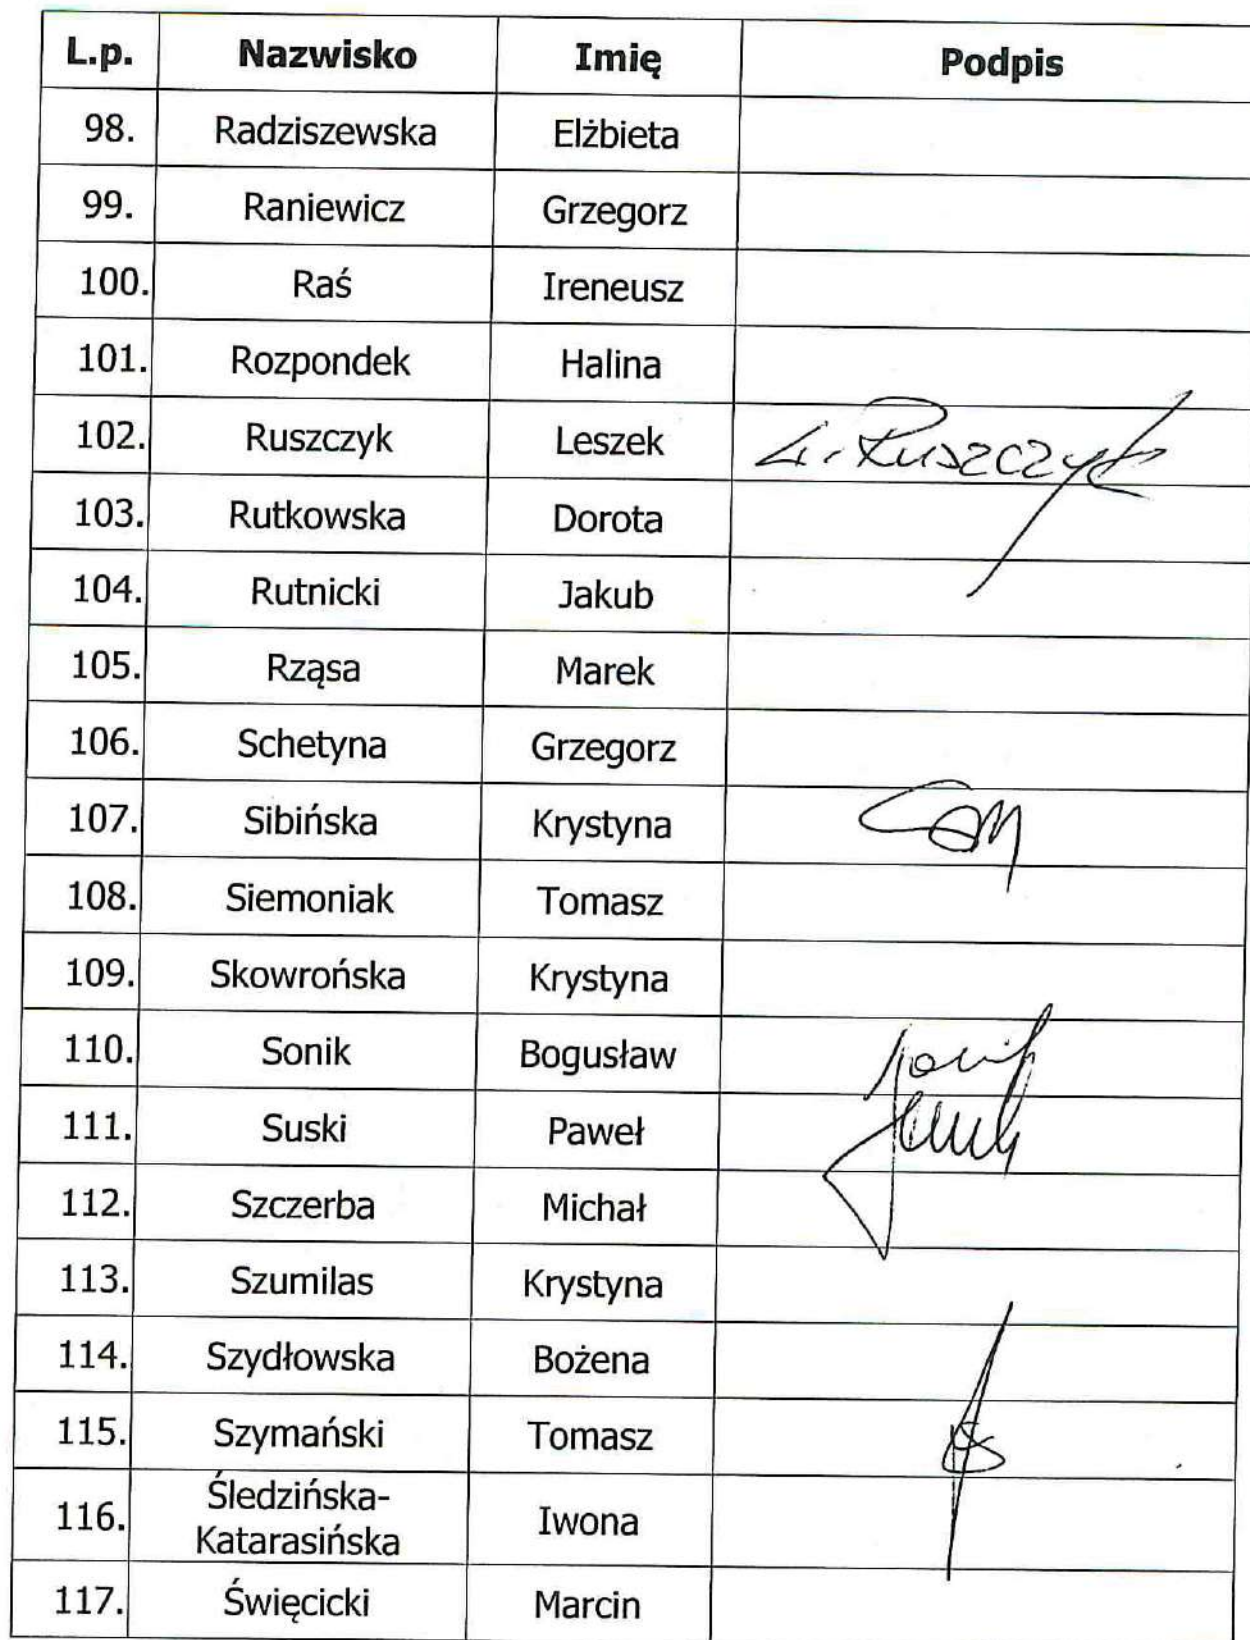 L.p. Nazwisko Imię Podpis
98. Radziszewska Elżbieta
99. Raniewicz Grzegorz
100. Raś Ireneusz
101. Rozpondek Halina
102. Ruszczyk Leszek L. Ruszczyk
103. Rutkowska Dorota
104. Rutnicki Jakub
105. Rząsa Marek
106. Schetyna Grzegorz
107. Sibińska Krystyna
108. Siemoniak Tomasz
109. Skowrońska Krystyna
110. Sonik Bogusław Sonik
111. Suski Paweł
112. Szczerba Michał
113. Szumilas Krystyna
114. Szydłowska Bożena
115. Szymański Tomasz
116. Śledzińska-
Katarasińska Iwona
117. Święcicki Marcin